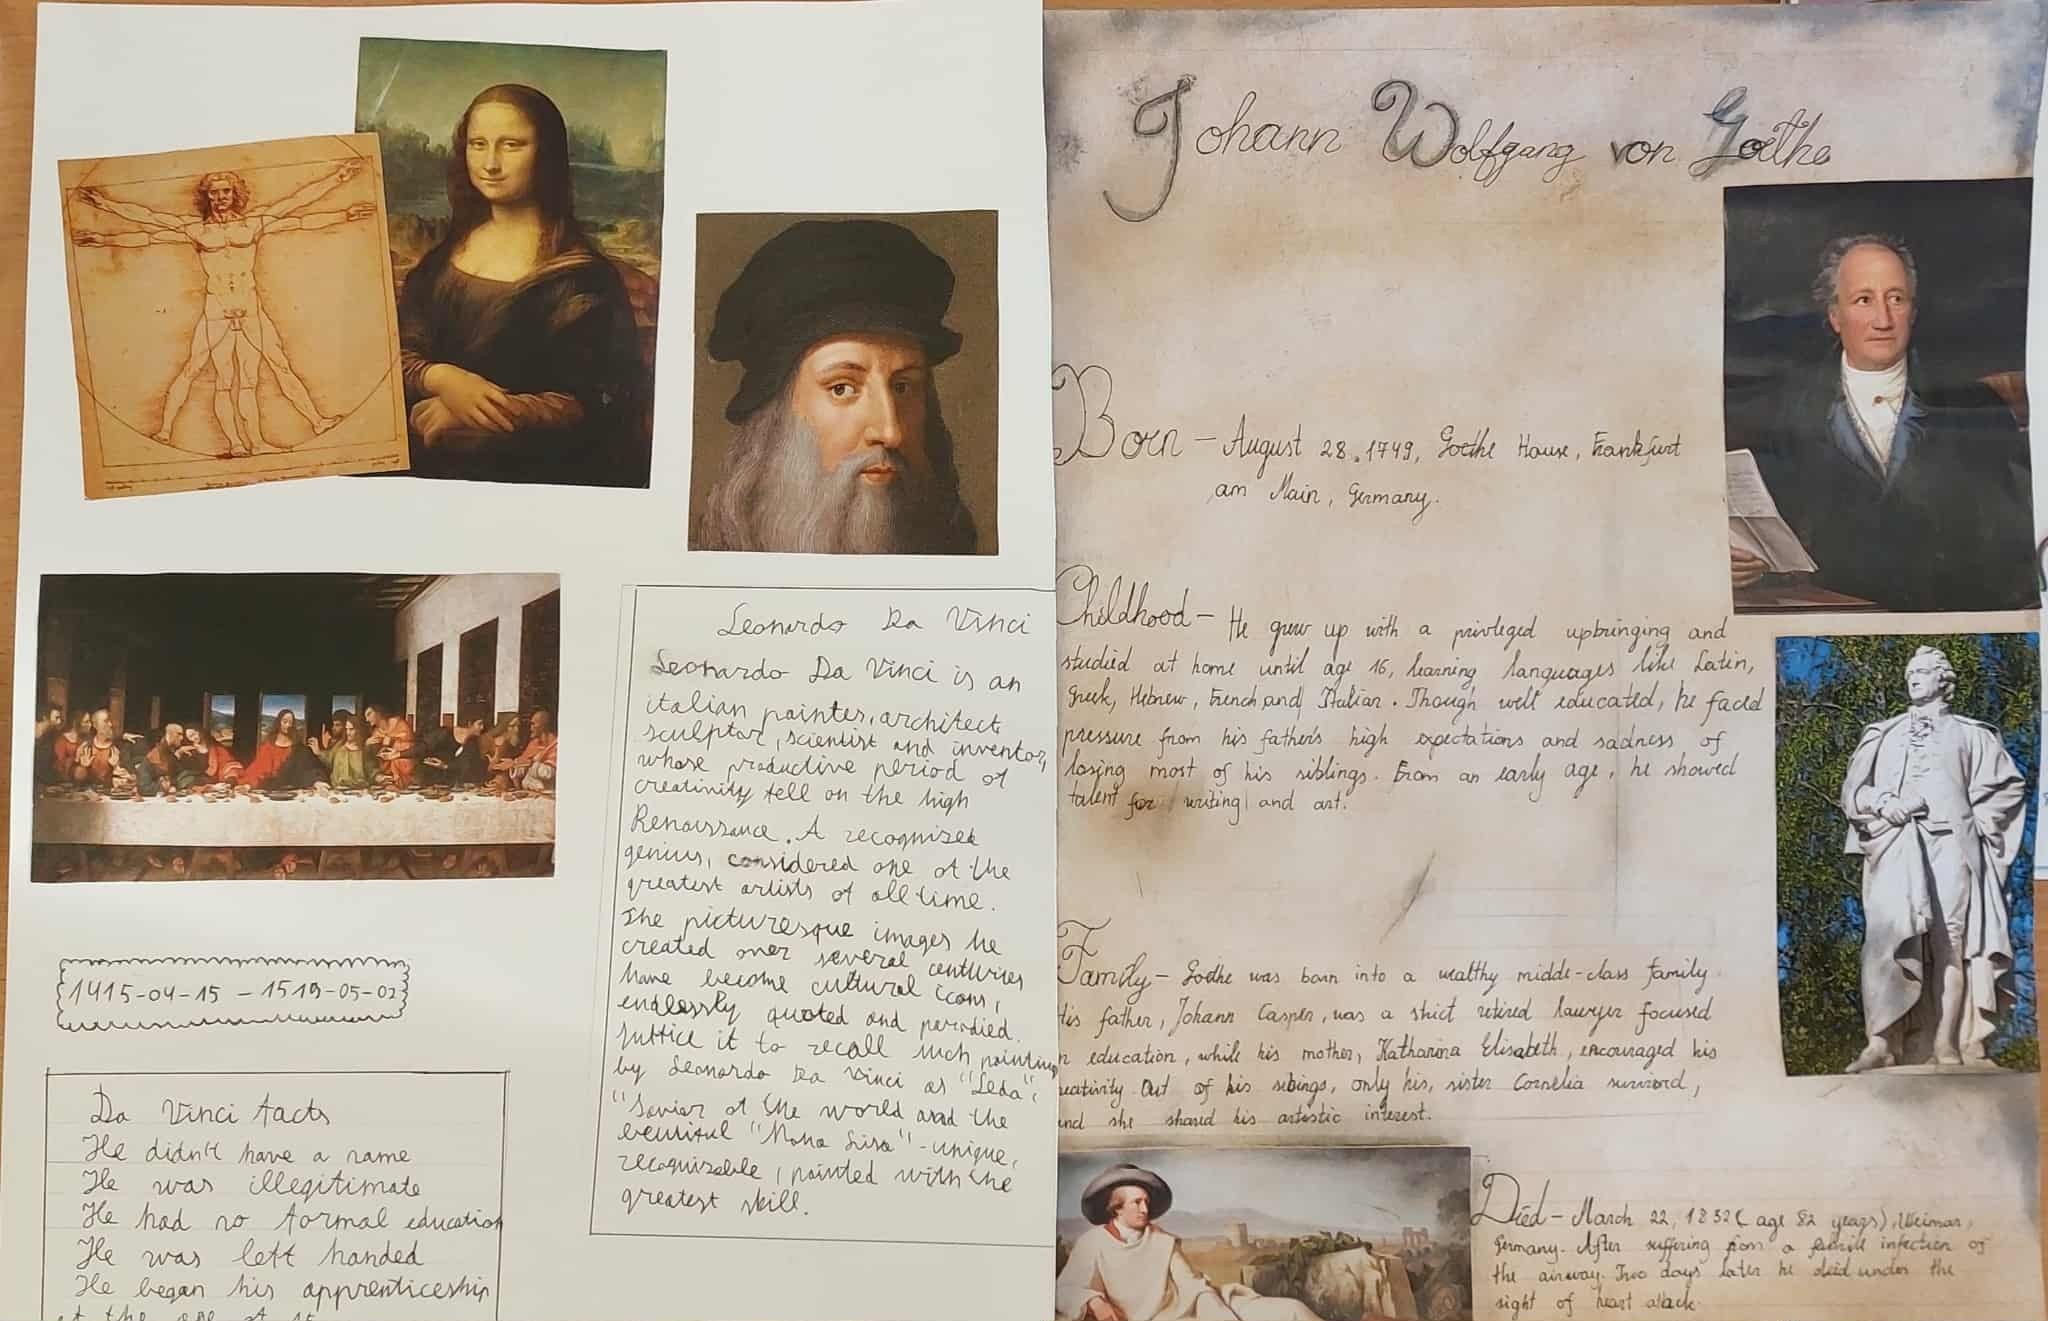 1415-04-15 - 1519-05-02
Da Vinci facts
He didn't have a name
He was illegitimate
He had no formal education
He was left handed
He began his apprenticeship
Leonardo Da Vinci
Leonardo Da Vinci is an
italian painter, architect,
sculptor, scientist and inventor,
whose productive period of
creativity fell on the high
Renaissance. A recognized
genius, considered one of the
greatest artists of all time.
The picturesque images he
created over several centuries
have become cultural icons,
endlessly quoted and parodied.
Suffice it to recall such painting
by Leonardo Da Vinci as "Leda",
"Savior of the world and the
beutiful "Mona Lisa" - unique,
recognizable, painted with the
greatest skill.
Johann Wolfgang von Goethe
Born - August 28.1749, Goethe House, Frankfurt
am Main, Germany.
Childhood - He grew up with a privleged upbringing and
studied at home until age 16, learning languages like Latin,
Greek, Hebrew, French and Italian. Though well educated, he faced
pressure from his father's high expectations and sadness of
losing most of his siblings. From an early age, he showed
talent for writing and art.
Family - Goethe was born into a wealthy midde-class family
His father, Johann Casper, was a strict retired lawyer focused
n education, while his mother, Katharina Elisabeth, encouraged his
reativity. Out of his sibings, only his, sister Cornelia survived,
and she shared his artistic interest.
Died - March 22, 1832 (age 82 years), Weimar,
Germany. After suffering from a infection of
the airway. Two days later he died under the
sight of heart attack.